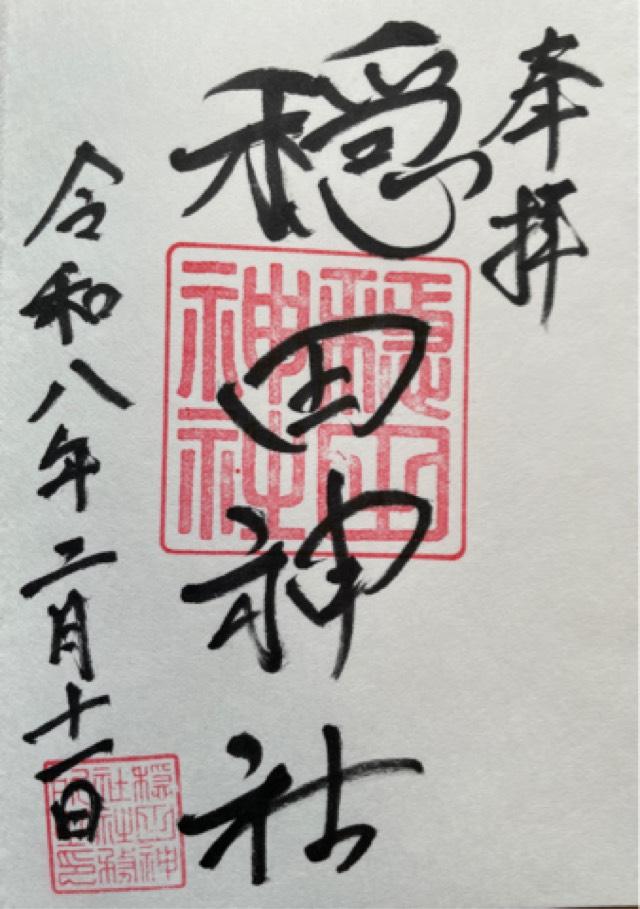 奉拝
穏田神社
穏田
神社
令和八年二月十一日
穏田神
社社務